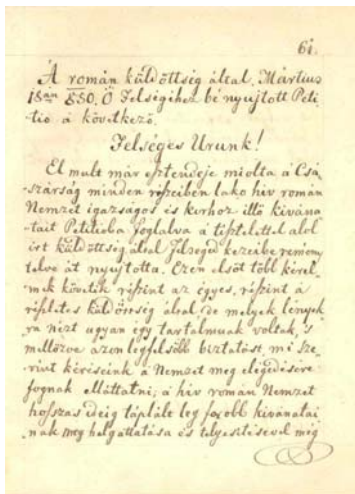 61.
A' román küldöttség által, Mártius
18án 850. Ő Felségihez bé nyujtott Peti-
tio a következő.
Felséges Urunk!
El mult már esztendeje miolta a Csá-
szárság minden részeiben lako hiv román
Nemzet igazságos és korhoz illő kivána-
tait Petitioba foglalva a tisztelettel alol
irt küldöttség által Felséged kezeibe remény
telve át nyujtotta. Ezen elsőt több kérel-
mek követték részint az egyes, részint a
részletes küldöttség által, de melyek lények
re nézt ugyan egy tartalmuak voltak, 's
mellőzve azon legfelsőbb biztatást, mi sze-
rint kéréseink a Nemzet meg elégedésére
fognak elláttatni, a hiv román Nemzet
hosszas ideig táplált leg forobb kivánatai
nak meg halgattatása és telyesitésével még